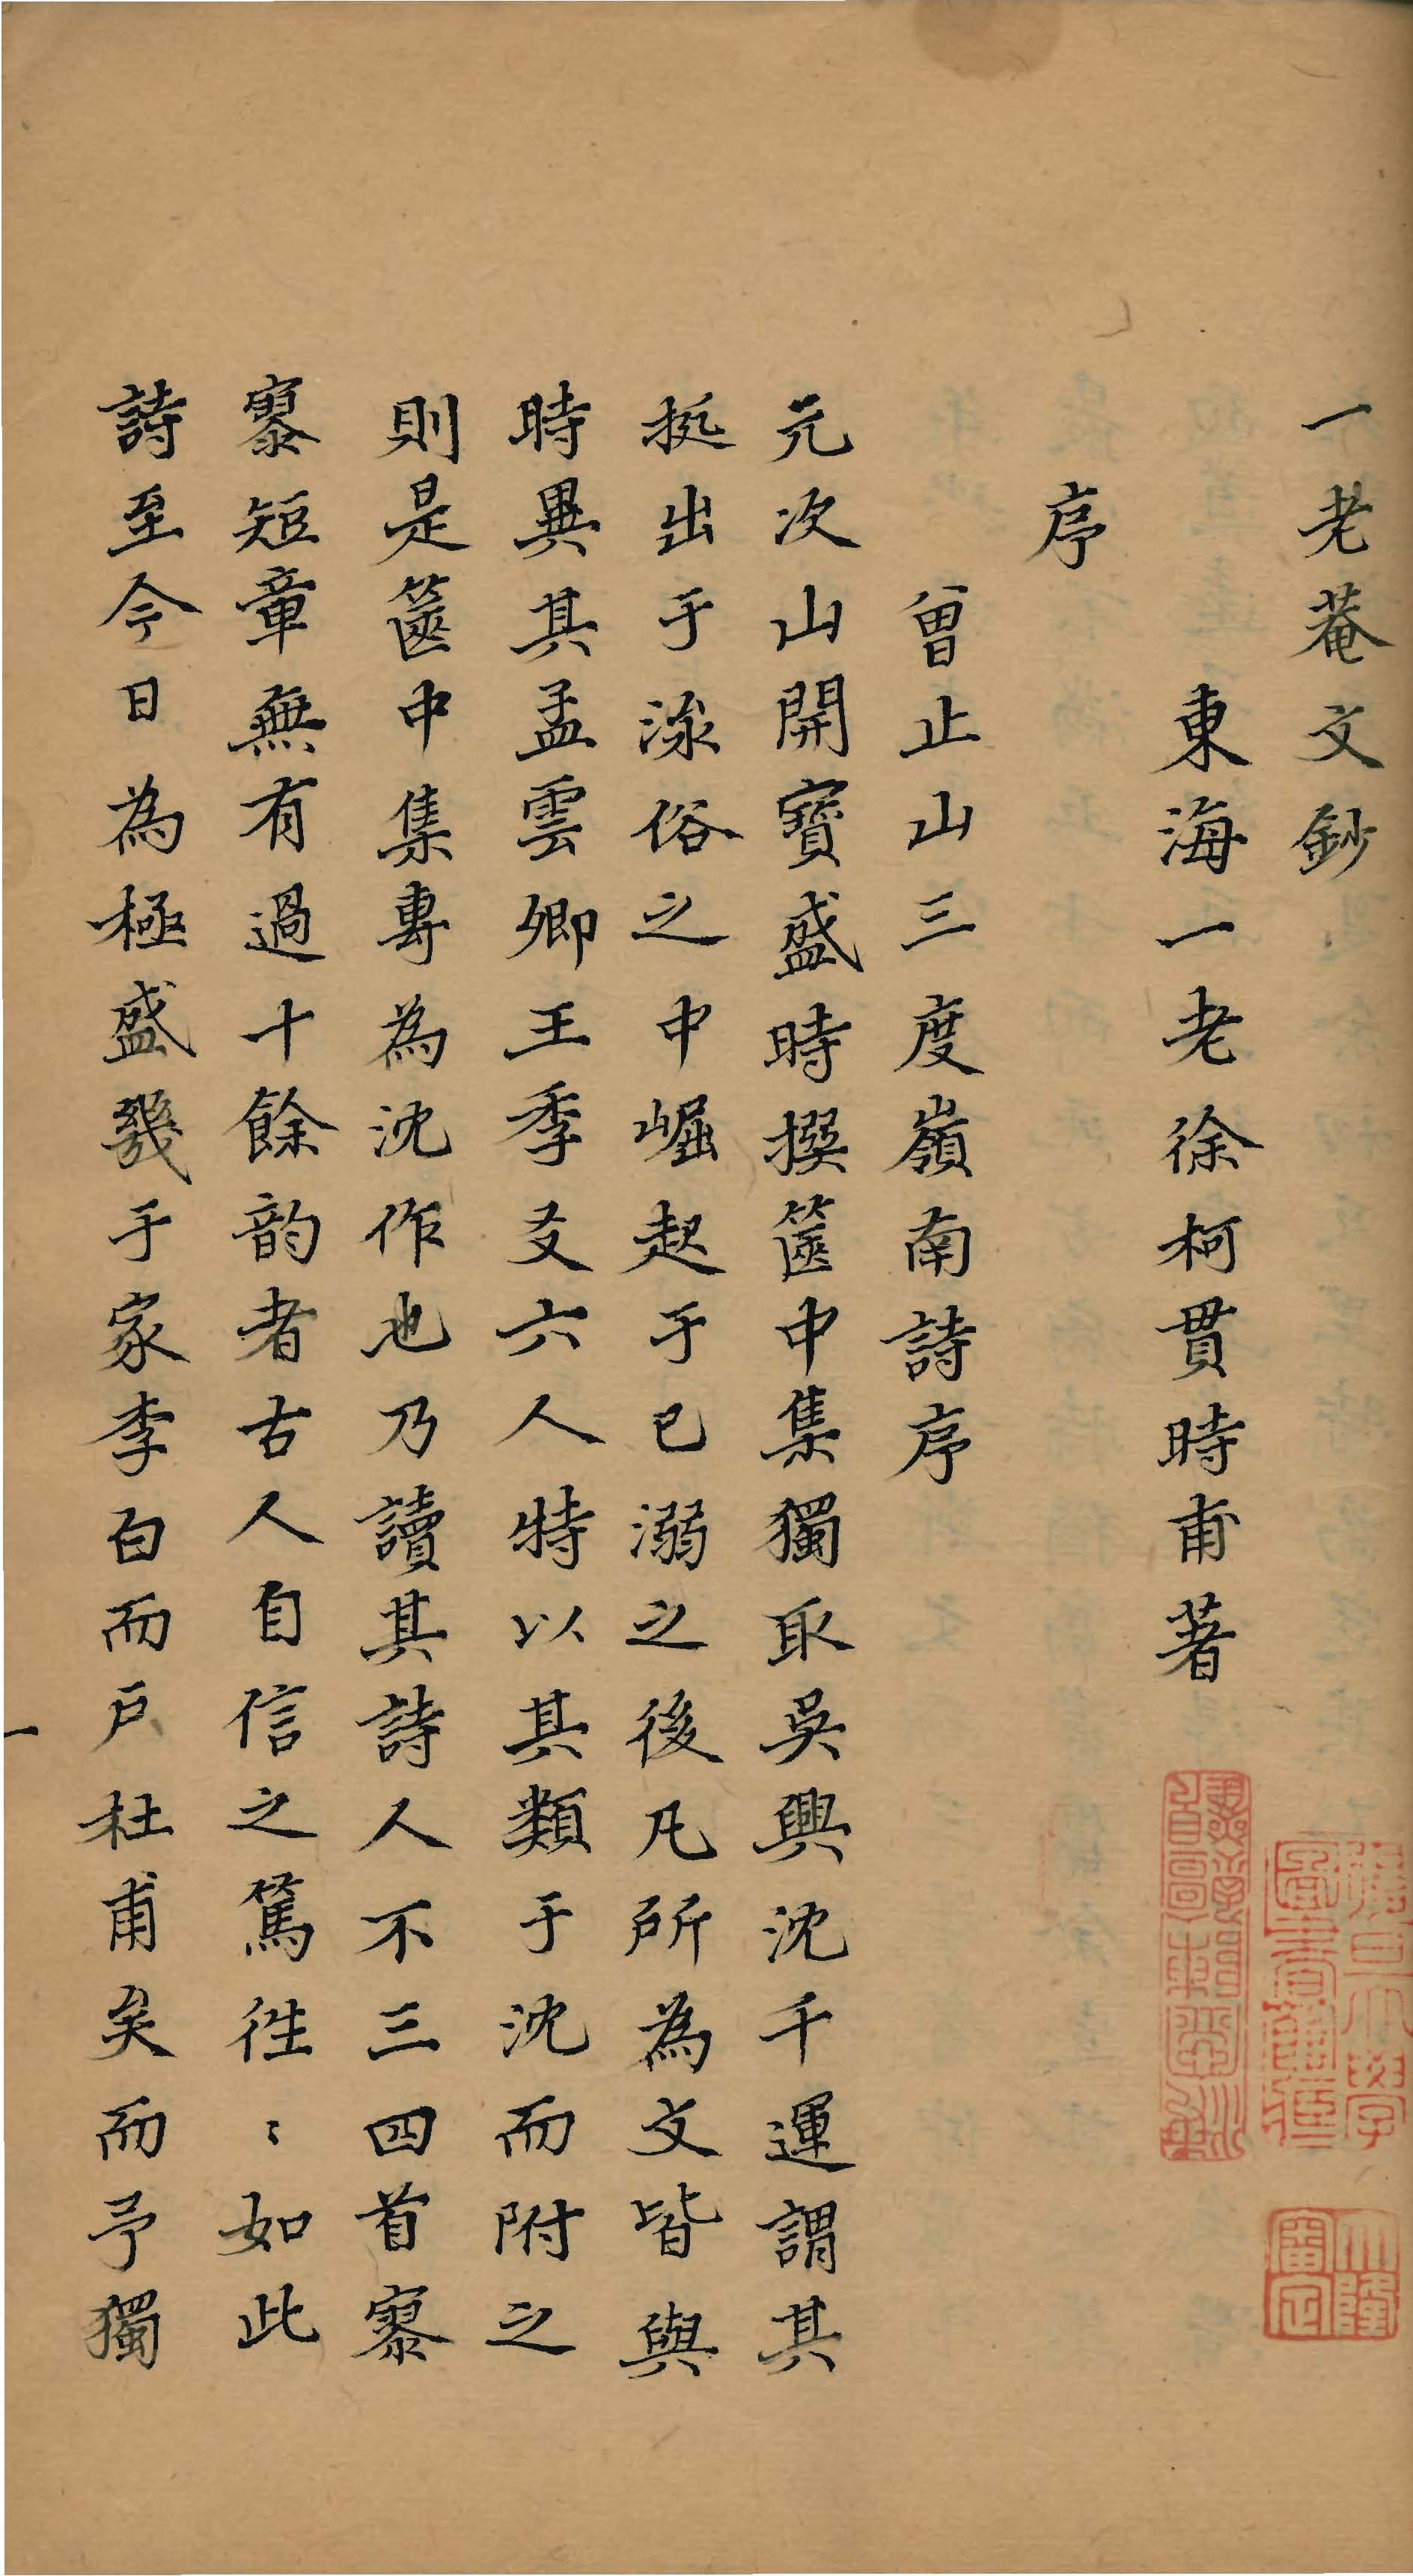 一老菴文鈔
東海一老徐柯貫時甫著
序
曾止山三度嶺南詩序
元次山開寶盛時撰篋中集獨取吳興沈千運謂其
挺出于流俗之中崛起于已溺之後凡所為文皆與
時異其孟雲卿王季友六人特以其類于沈而附之
則是篋中集專為沈作也乃讀其詩人不三四首寥
寥短章無有過十餘韵者古人自信之篤徃〻如此
詩至今日為極盛幾于家李白而戶杜甫矣而予獨
一